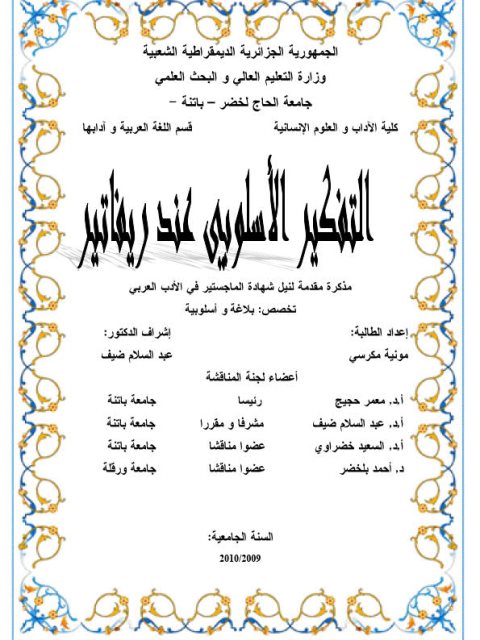 الجمهورية الجزائرية الديمقراطية الشعبية
وزارة التعليم العالي و البحث العلمي
جامعة الحاج لخضر – باتنة -
كلية الآداب و العلوم الإنسانية قسم اللغة العربية و آدابها
التفكير الأسلوبي عند ريفاتير
مذكرة مقدمة لنيل شهادة الماجستير في الأدب العربي
تخصص: بلاغة و أسلوبية
إعداد الطالبة: إشراف الدكتور:
مونية مكرسي عبد السلام ضيف
أعضاء لجنة المناقشة
أ.د. معمر حجيج رئيسا جامعة باتنة
أ.د. عبد السلام ضيف مشرفا و مقررا جامعة باتنة
أ.د. السعيد خضراوي عضوا مناقشا جامعة باتنة
د. أحمد بلخضر عضوا مناقشا جامعة ورقلة
السنة الجامعية:
2010/2009